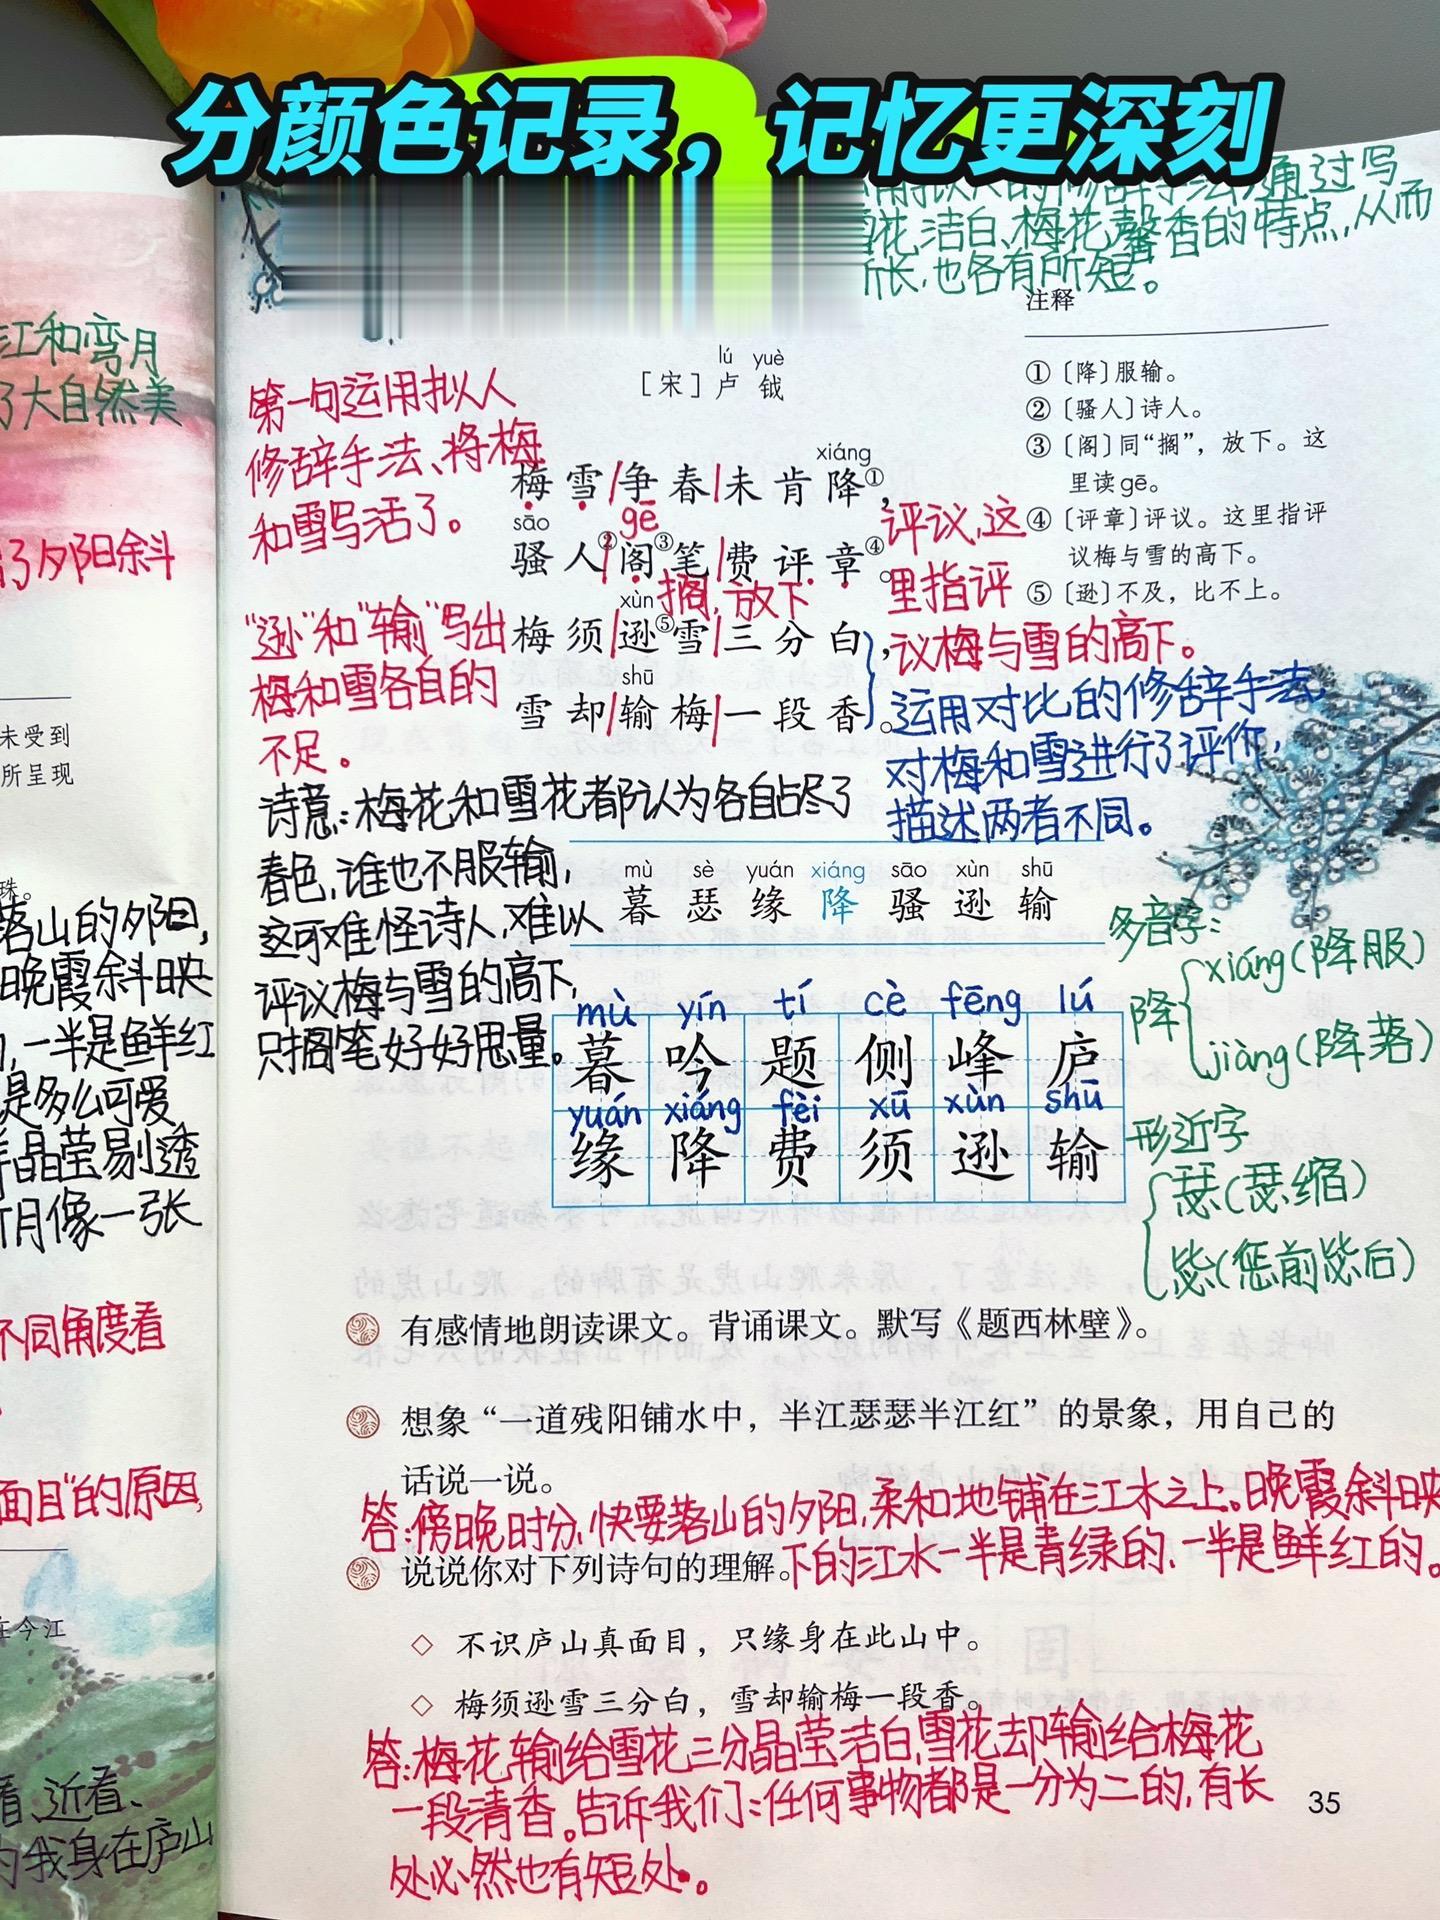 分颜色记录，记忆更深刻
的修辞手法，通过写
花、洁白、梅花馨香的特点，从而
所长，也各有所短。
江和弯月
了大自然美
了夕阳余斗
未受到
所呈现
珠。
落山的夕阳，
晚霞斜映
一半是鲜红
是多么可爱
晶莹剔透
月像一张
不同角度看
面目"的原因，
在今江
看、近看、
为我身在庐山
lú yuè
［宋］卢 钺
注释
①〔降〕服输。
②〔骚人〕诗人。
③〔阁〕同“搁”，放下。这
里读gē。
④〔评章〕评议。这里指评
议梅与雪的高下。
⑤〔逊〕不及，比不上。
第一句运用拟人
修辞手法、将梅
和雪写活了。
xiáng
梅雪/争春/未肯降①，
sāo gē
骚人②/阁③笔/费评章④。
搁，放下
xùn
梅须/逊⑤雪/三分白，
shū
雪却/输梅/一段香。
评议，这
里指评
议梅与雪的高下。
“逊”和“输”写出
梅和雪各自的
不足。
运用对比的修辞手法，
对梅和雪进行了评价，
描述两者不同。
诗意：梅花和雪花都认为各自占尽了
春色，谁也不服输，
这可难怪诗人，难以
评议梅与雪的高下，
只搁笔好好思量。
mù sè yuán xiáng sāo xùn shū
暮 瑟 缘 降 骚 逊 输
mù yín tí cè fēng lú
暮 吟 题 侧 峰 庐
yuán xiáng fèi xū xùn shū
缘 降 费 须 逊 输
多音字：
降
xiáng（降服）
jiàng（降落）
形近字
瑟（瑟缩）
毖（惩前毖后）
有感情地朗读课文。背诵课文。默写《题西林壁》。
想象“一道残阳铺水中，半江瑟瑟半江红”的景象，用自己的
话说一说。
答：傍晚时分，快要落山的夕阳，柔和地铺在江水之上。晚霞斜映
下的江水一半是青绿的、一半是鲜红的。
说说你对下列诗句的理解。
◇ 不识庐山真面目，只缘身在此山中。
◇ 梅须逊雪三分白，雪却输梅一段香。
答：梅花输给雪花三分晶莹洁白，雪花却输给梅花
一段清香。告诉我们：任何事物都是一分为二的，有长
处必然也有短处。
35